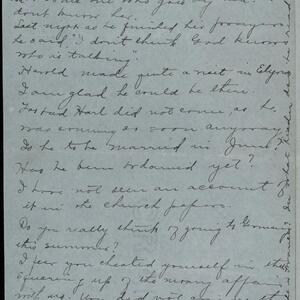 don't know her.
Last night as he finished his prayers
he said, "I don't think God knows
who is talking".
Harold made quite a visit in Elyria
I am glad he could be there.
Too bad Harl did not come, as he
was coming so soon anyway.
Is he to be married in June?
Has he been ordained yet?
I have not seen an account of
it in the church papers.
Do you really think of going to Germany
this summer?
I fear you cheated yourself in the
squaring up of the money affairs
with us. You did not